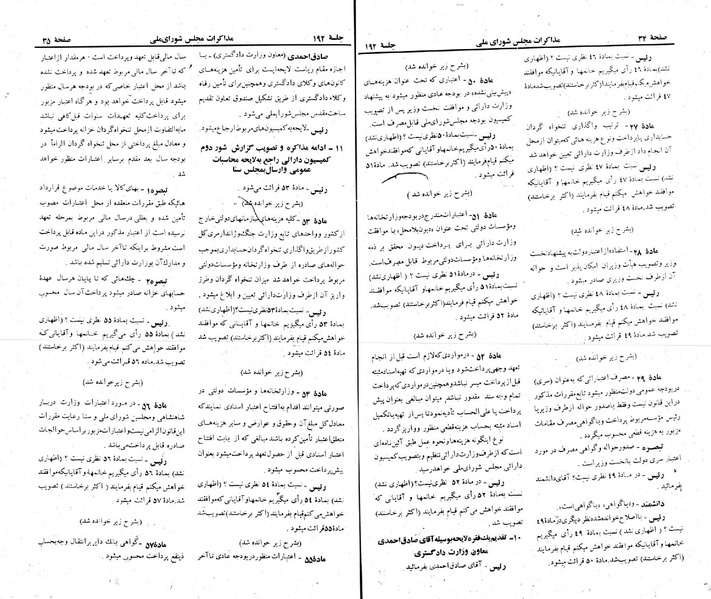 صفحهٔ ۳۴
مذاکرات مجلس شورای ملی
جلسهٔ ۱۹۲
رئیس - نسبت بمادهٔ ۴۶ نظری نیست ؟ (اظهاری
نشد) بمادهٔ ۴۶ رأی میگیریم خانمها و آقایانیکه موافقند
خواهش میکنم قیام فرمایند (اکثر برخاستند) تصویب شد. مادهٔ
۴۷ قرائت میشود.
(بشرح زیر خوانده شد)
مادهٔ ۴۷ - ترتیب واگذاری تنخواه گردان
حسابداری پایاپرداخت ونوع هزینه هائی که ازمحل تنخواه گردان
آن انجام داد از طرف وزارت دارائی تعیین خواهد شد
رئیس - نسبت بمادهٔ ۴۷ نظری نیست ؟ (اظهاری
نشد) بمادهٔ ۴۷ رأی میگیریم خانمها و آقایانیکه
موافقند خواهش میکنم قیام فرمایند (اکثر برخاستند)
تصویب شد. مادهٔ ۴۸ قرائت میشود.
(بشرح زیر خوانده شد)
مادهٔ ۴۸ - استفاده از اعتبار دولت به پیشنهاد نخست
وزیر و تصویب هیأت وزیران امکان پذیر است و حواله
آن از طرف نخست وزیری صادر میشود.
رئیس - نسبت بمادهٔ ۴۸ نظری نیست ؟ (اظهاری
نشد) بمادهٔ ۴۸ رأی میگیریم خانمها و آقایانیکه موافقند
خواهش میکنم قیام فرمایند (اکثر برخاستند)
تصویب شد. مادهٔ ۴۹ قرائت میشود.
(بشرح زیر خوانده شد)
مادهٔ ۴۹ - مصرف اعتباراتی که به عنوان (سری)
در بودجه عمومی دولت منظور میشود تابع مقررات مذکور
در این قانون نیست وفقط باصدور حواله از طرف وزیر یا
رئیس مؤسسه مربوط پرداخت وباگواهی مصرف مقامات
مزبور به هزینه قطعی منظور میگردد.
تبصره - صدور حواله وگواهی مصرف در مورد
اعتبار سری دولت بانخست وزیر است.
رئیس - در مادهٔ ۴۹ نظری نیست ؟ آقای دانشمند
بفرمائید.
دانشمند - و با گواهی، با گواهی است.
رئیس - با اصلاح خوانده شده نظر دیگری در مادهٔ ۴۹
نیست ؟ (اظهاری نشد) بمادهٔ ۴۹ رأی میگیریم خانمها
و آقایانیکه موافقند خواهش میکنم قیام فرمایند (اکثر
برخاستند) تصویب شد. مادهٔ ۵۰ قرائت میشود.
(بشرح زیر خوانده شد)
مادهٔ ۵۰ - اعتباری که تحت عنوان هزینه‌های
«پیش بینی نشده» در بودجه عادی منظور میشود به پیشنهاد
وزارت دارائی و موافقت نخست وزیر پس از تصویب
کمیسیون بودجه مجلس شورای ملی قابل مصرف است.
رئیس - نسبت بمادهٔ ۵۰ نظری نیست ؟ (اظهاری نشد)
بمادهٔ ۵۰ رأی میگیریم خانمها و آقایانیکه موافقند خواهش
میکنم قیام فرمایند (اکثر برخاستند) تصویب شد. مادهٔ ۵۱
قرائت میشود.
(بشرح زیر خوانده شد)
مادهٔ ۵۱ - اعتبارات مندرج در بودجه وزارتخانه‌ها
ومؤسسات دولتی تحت عنوان «دیون بلامحل» با موافقت
وزارت دارائی برای پرداخت دیون محقق بر ذمه
وزارتخانه‌ها ومؤسسات دولتی مربوط قابل مصرف است.
رئیس - در مادهٔ ۵۱ نظری نیست ؟ (اظهاری نشد)
نسبت بمادهٔ ۵۱ رأی میگیریم خانمها و آقایانیکه موافقند
خواهش میکنم قیام فرمایند (اکثر برخاستند) تصویب شد.
مادهٔ ۵۲ قرائت میشود.
(بشرح زیر خوانده شد)
مادهٔ ۵۲ - در مواردی که لازم است قبل از انجام
تعهد وجهی پرداخت شود ویا در مواردی که تهیه اسناد مثبته
قبل از پرداخت میسر نباشد وهمچنین در مواردی که پرداخت
تمام وجه سند مقدور نباشد میتوان مبالغی بعنوان پیش
پرداخت یا علی الحساب تأدیه نمود تا پس از تهیه یا تکمیل
اسناد مثبته بحساب هزینه قطعی منظور و واریز گردد.
نوع اینگونه هزینه‌ها و نحوه عمل طبق آئین نامه‌ای
است که از طرف وزارت دارائی تنظیم و بتصویب کمیسیون
دارائی مجلس شورای ملی خواهد رسید.
رئیس - در مادهٔ ۵۲ نظری نیست ؟ (اظهاری نشد)
نسبت بمادهٔ ۵۲ رأی میگیریم خانمها و آقایانی که
موافقند خواهش میکنم قیام فرمایند (اکثر برخاستند)
تصویب شد.
۱۰- تقدیم یک فقره لایحه بوسیله آقای صادق احمدی
معاون وزارت دادگستری
رئیس - آقای صادق احمدی بفرمائید
جلسهٔ ۱۹۲
مذاکرات مجلس شورای ملی
صفحهٔ ۳۵
صادق احمدی (معاون وزارت دادگستری) - با
اجازه مقام ریاست لایحه ایست برای تأمین هزینه‌های
کانون‌های وکلای دادگستری وهمچنین برای تأمین رفاه
وکلاء دادگستری از طریق تشکیل صندوق تعاون تقدیم
مجلس مقدس شورای ملی می‌شود.
رئیس - لایحه به کمیسیون‌های مربوط ارجاع میشود.
۱۱ - ادامه مذاکره و تصویب گزارش شور دوم
کمیسیون دارائی راجع به لایحه محاسبات
عمومی وارسال بمجلس سنا
رئیس - مادهٔ ۵۳ قرائت می‌شود.
(بشرح زیر خوانده شد)
مادهٔ ۵۳ - کلیه هزینه‌های سازمانهای دولتی خارج
از کشور و واحدهای تابع وزارت جنگ و ژاندارمری کل
کشور از طریق واگذاری تنخواه گردان حسابداری بموجب
حواله‌های صادره از طرف وزارتخانه ومؤسسات دولتی
مربوط پرداخت خواهد شد میزان تنخواه گردان وطرز
واریز آن از طرف وزارت دارائی تعیین و ابلاغ میشود.
رئیس - نسبت بمادهٔ ۵۳ نظری نیست ؟ (اظهاری نشد)
بمادهٔ ۵۳ رأی میگیریم خانمها و آقایانی که موافقند
خواهش میکنم قیام فرمایند (اکثر برخاستند) تصویب شد.
مادهٔ ۵۴ قرائت میشود.
(بشرح زیر خوانده شد)
مادهٔ ۵۴ - وزارتخانه‌ها و مؤسسات دولتی در
صورتی میتوانند اقدام به افتتاح اعتبار اسنادی نمایند که
معادل کل مبلغ آن وحقوق و عوارض و سایر هزینه‌های
متعلق اعتبار تأمین کرده باشند مبالغی که از بابت افتتاح
اعتبار اسنادی قبل از حصول تعهد پرداخت میشود بعنوان
پیش پرداخت محسوب میشود.
رئیس - نسبت بمادهٔ ۵۴ نظری نیست ؟ (اظهاری
نشد) بمادهٔ ۵۴ رأی میگیریم خانمها و آقایانیکه موافقند
خواهش می‌کنم قیام فرمایند (اکثر برخاستند) تصویب شد.
مادهٔ ۵۵ قرائت میشود.
(بشرح زیر خوانده شد)
مادهٔ ۵۵ - اعتبارات منظور در بودجه عادی تا آخر
سال مالی قابل تعهد وپرداخت است - هر مقدار از اعتبار
که تا آخر سال مالی مربوط تعهد شده و پرداخت نشده
باشد از محل اعتبار خاصی که در بودجه هر سال منظور
میشود قابل پرداخت خواهد بود و هر گاه اعتبار مزبور
برای پرداخت کلیه تعهدات سنوات قبل کافی نباشد
مابه التفاوت از محل تنخواه گردان خزانه پرداخت میشود
و معادل مبلغ پرداختی از محل تنخواه گردان الزاماً در
بودجه سال بعد مقدم برسایر اعتبارات منظور خواهد
شد.
تبصره ۱ - بهای کالا یا خدمات موضوع قرارداد
هائیکه طبق مقررات منعقده از محل اعتبارات مصوب
تأمین شده و بعللی در سال مالی مربوط بمرحله تعهد
نرسیده است از اعتبار مذکور در این ماده قابل پرداخت
است مشروط براینکه تا آخر سال مالی مربوط صورت
و مدارک آن بوزارت دارائی تسلیم شده باشد.
تبصره ۲ - چک‌هائی که تا پایان هر سال عهدهٔ
حسابهای خزانه صادر میشود پرداخت آن سال محسوب
میشود.
رئیس - نسبت بمادهٔ ۵۵ نظری نیست ؟ (اظهاری
نشد) بمادهٔ ۵۵ رأی می‌گیریم خانمها و آقایانی که
موافقند خواهش می‌کنم قیام فرمایند (اکثر برخاستند)
تصویب شد. مادهٔ ۵۶ قرائت می‌شود.
(بشرح زیر خوانده شد)
مادهٔ ۵۶ - در مورد اعتبارات وزارت دربار
شاهنشاهی ومجلسین شورای ملی و سنا رعایت مقررات
این قانون الزامی نیست و اعتبارات مزبور براساس حوالجات
صادره قابل پرداخت می‌باشد.
رئیس - نسبت بمادهٔ ۵۶ نظری نیست ؟ (اظهاری
نشد) بمادهٔ ۵۶ رأی میگیریم خانمها و آقایانیکه موافقند
خواهش میکنم قیام فرمایند (اکثر برخاستند) تصویب
شد. مادهٔ ۵۷ قرائت میشود.
(بشرح زیر خوانده شد)
مادهٔ ۵۷ - گواهی بانک دایر برانتقال وجه بحساب
ذینفع پرداخت محسوب میشود.